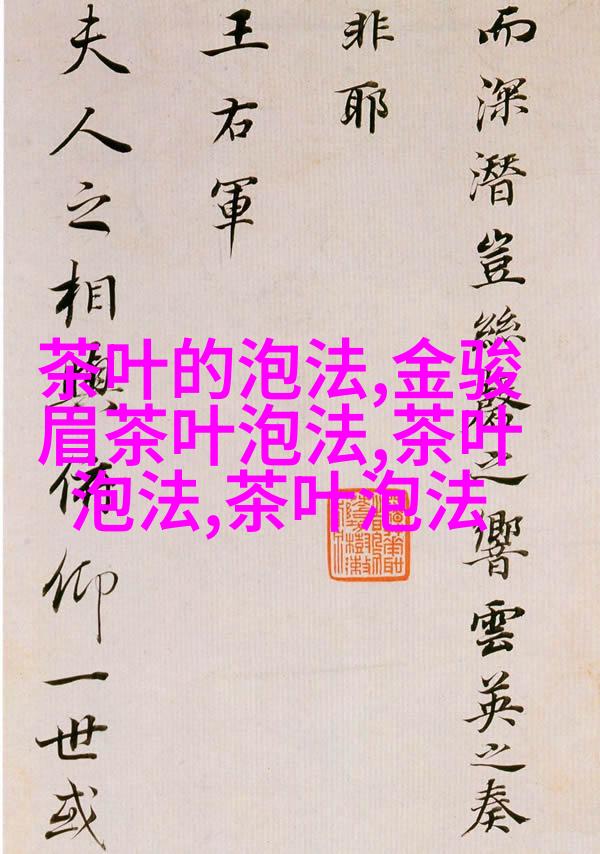 茶叶的泡法,金骏
眉茶叶泡法,茶叶
泡法,茶叶泡法
而深潛豈絲之響雲英之奏
非耶
王右軍
夫人之相與俯仰一世或